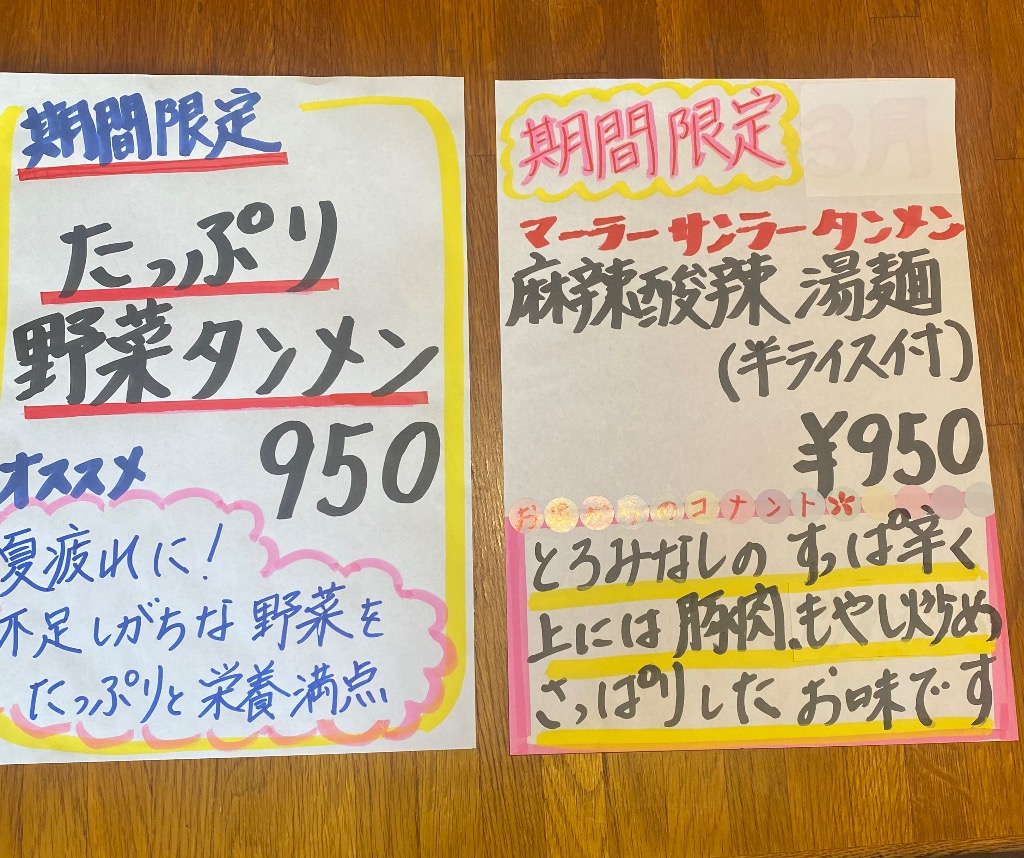 期間限定
たっぷり
野菜タンメン
950
オススメ
夏疲れに!
不足しがちな野菜を
たっぷりと栄養満点
期間限定
マーラーサンラータンメン
麻辣酸辣 湯麺
(半ライス付)
¥950
のコナント
とろみなしの すっぱ辛く
上には豚肉、もやし炒め
さっぱりした お味です